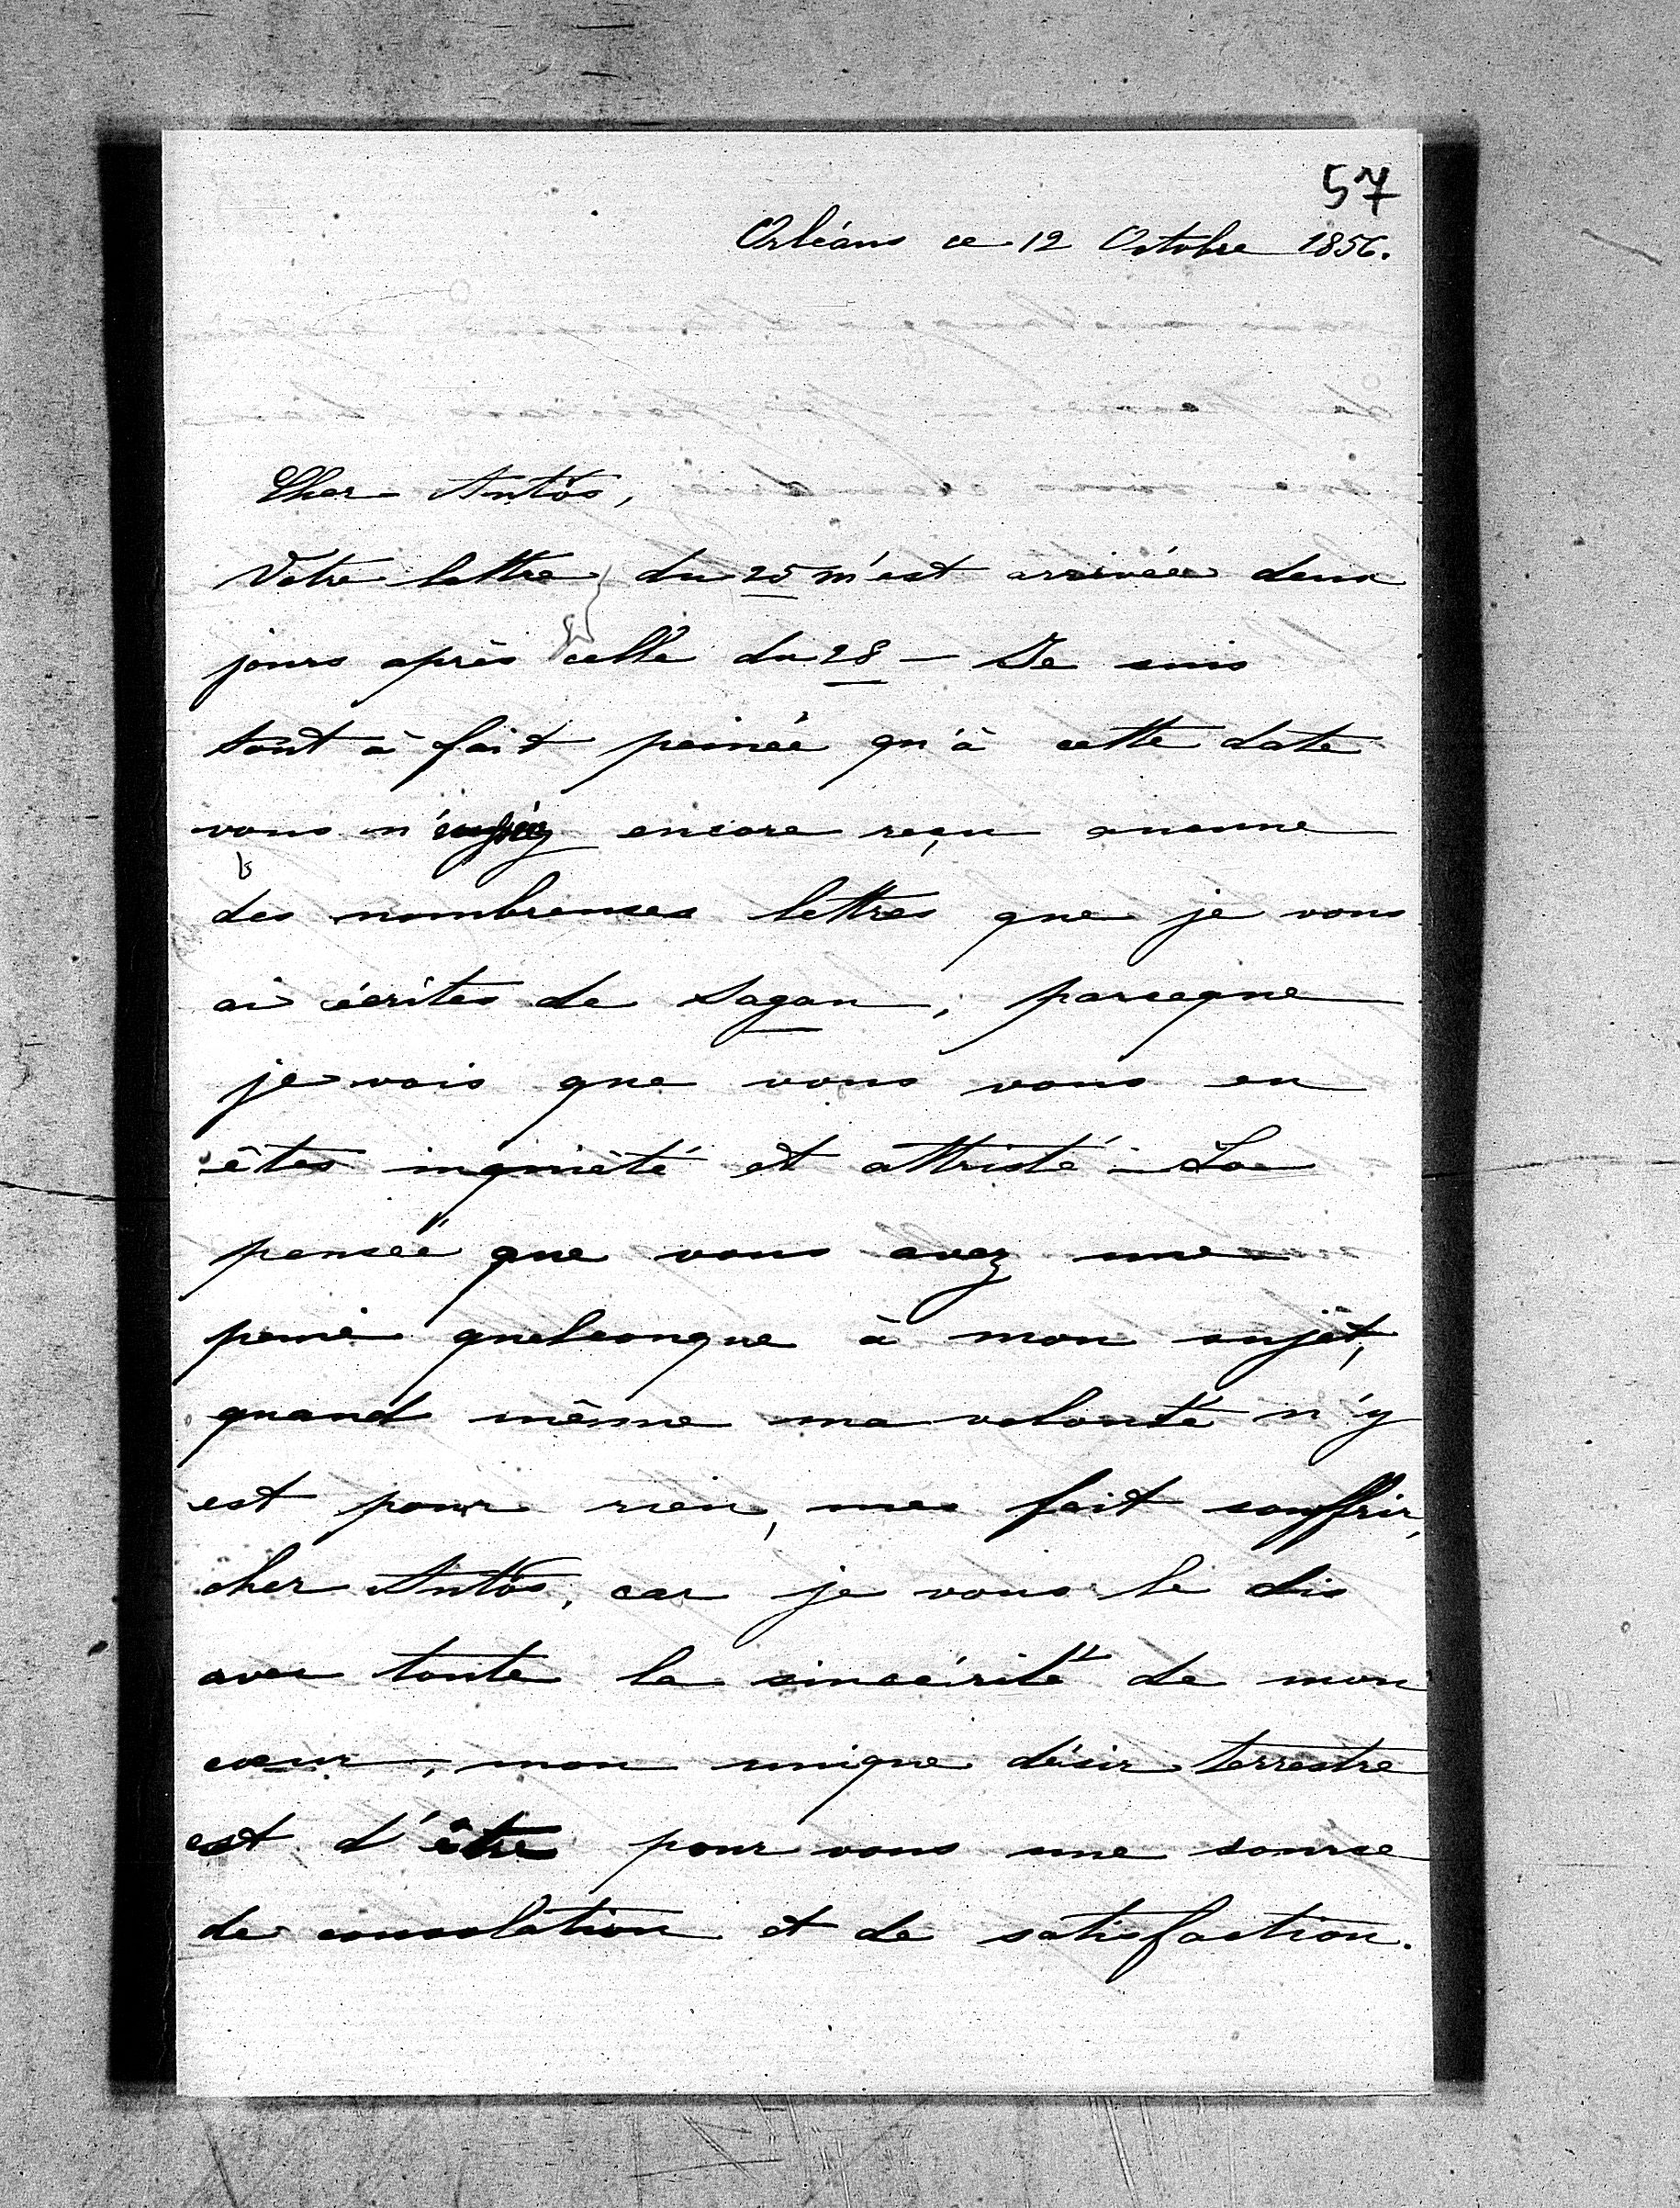 57
Orléans ce 12 Octobre 1856.
Cher Antôs,
Votre lettre du 25 m'est arrivée deux
jours après celle du 28 — Je suis
tout à fait peinée qu'à cette date
vous n'ayiéz encore reçu aucune
des nombreuses lettres que je vous
ai écrites de Sagan, parceque
je vois que vous vous en
êtes inquiété et attristé — La
pensée que vous avez une
peine quelconque à mon sujèt,
quand même ma volonté n'y
est pour rien, me fait souffrir,
cher Antôs, car je vous le dis
avec toute la sincérité de mon
coeur, mon unique désir terrestre
est d'être pour vous une source
de consolation et de satisfaction.